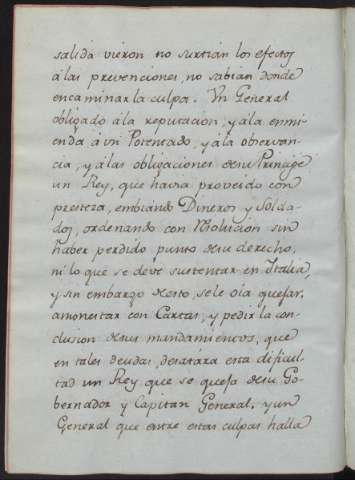 salida vieron no surtian los efectos
á las prevenciones, no sabian donde
encaminar la culpa. Un General
obligado á la reputacion, y á la enmi-
enda á un Potentado, y á la observan-
cia, y á las obligaciones de su Principe
un Rey, que havia proveido con
presteza, embiando Dineros y Solda-
dos, ordenando con resolucion sin
haber perdido punto de su derecho,
ni lo que se deve sustentar en Italia,
y sin embargo de esto, se le oia quejar,
amonestar con Cartas, y pedir la con-
clusion de sus mandamientos, que
en tales deudas, desatara esta dificul-
tad un Rey, que se queja de su Go-
bernador y Capitan General, y un
General que entre estas culpas halla